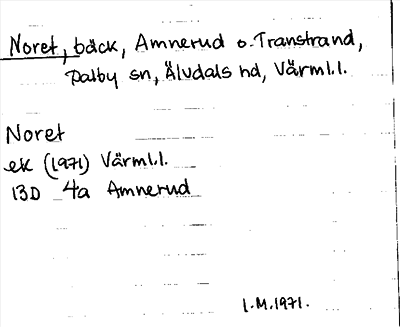 Noret, bäck, Amnerud o. Transtrand,
Dalby sn, Älvdals hd, Värml.l.
Noret
ek (1971) Värml.l.
13D 4a Amnerud
L.M.1971.